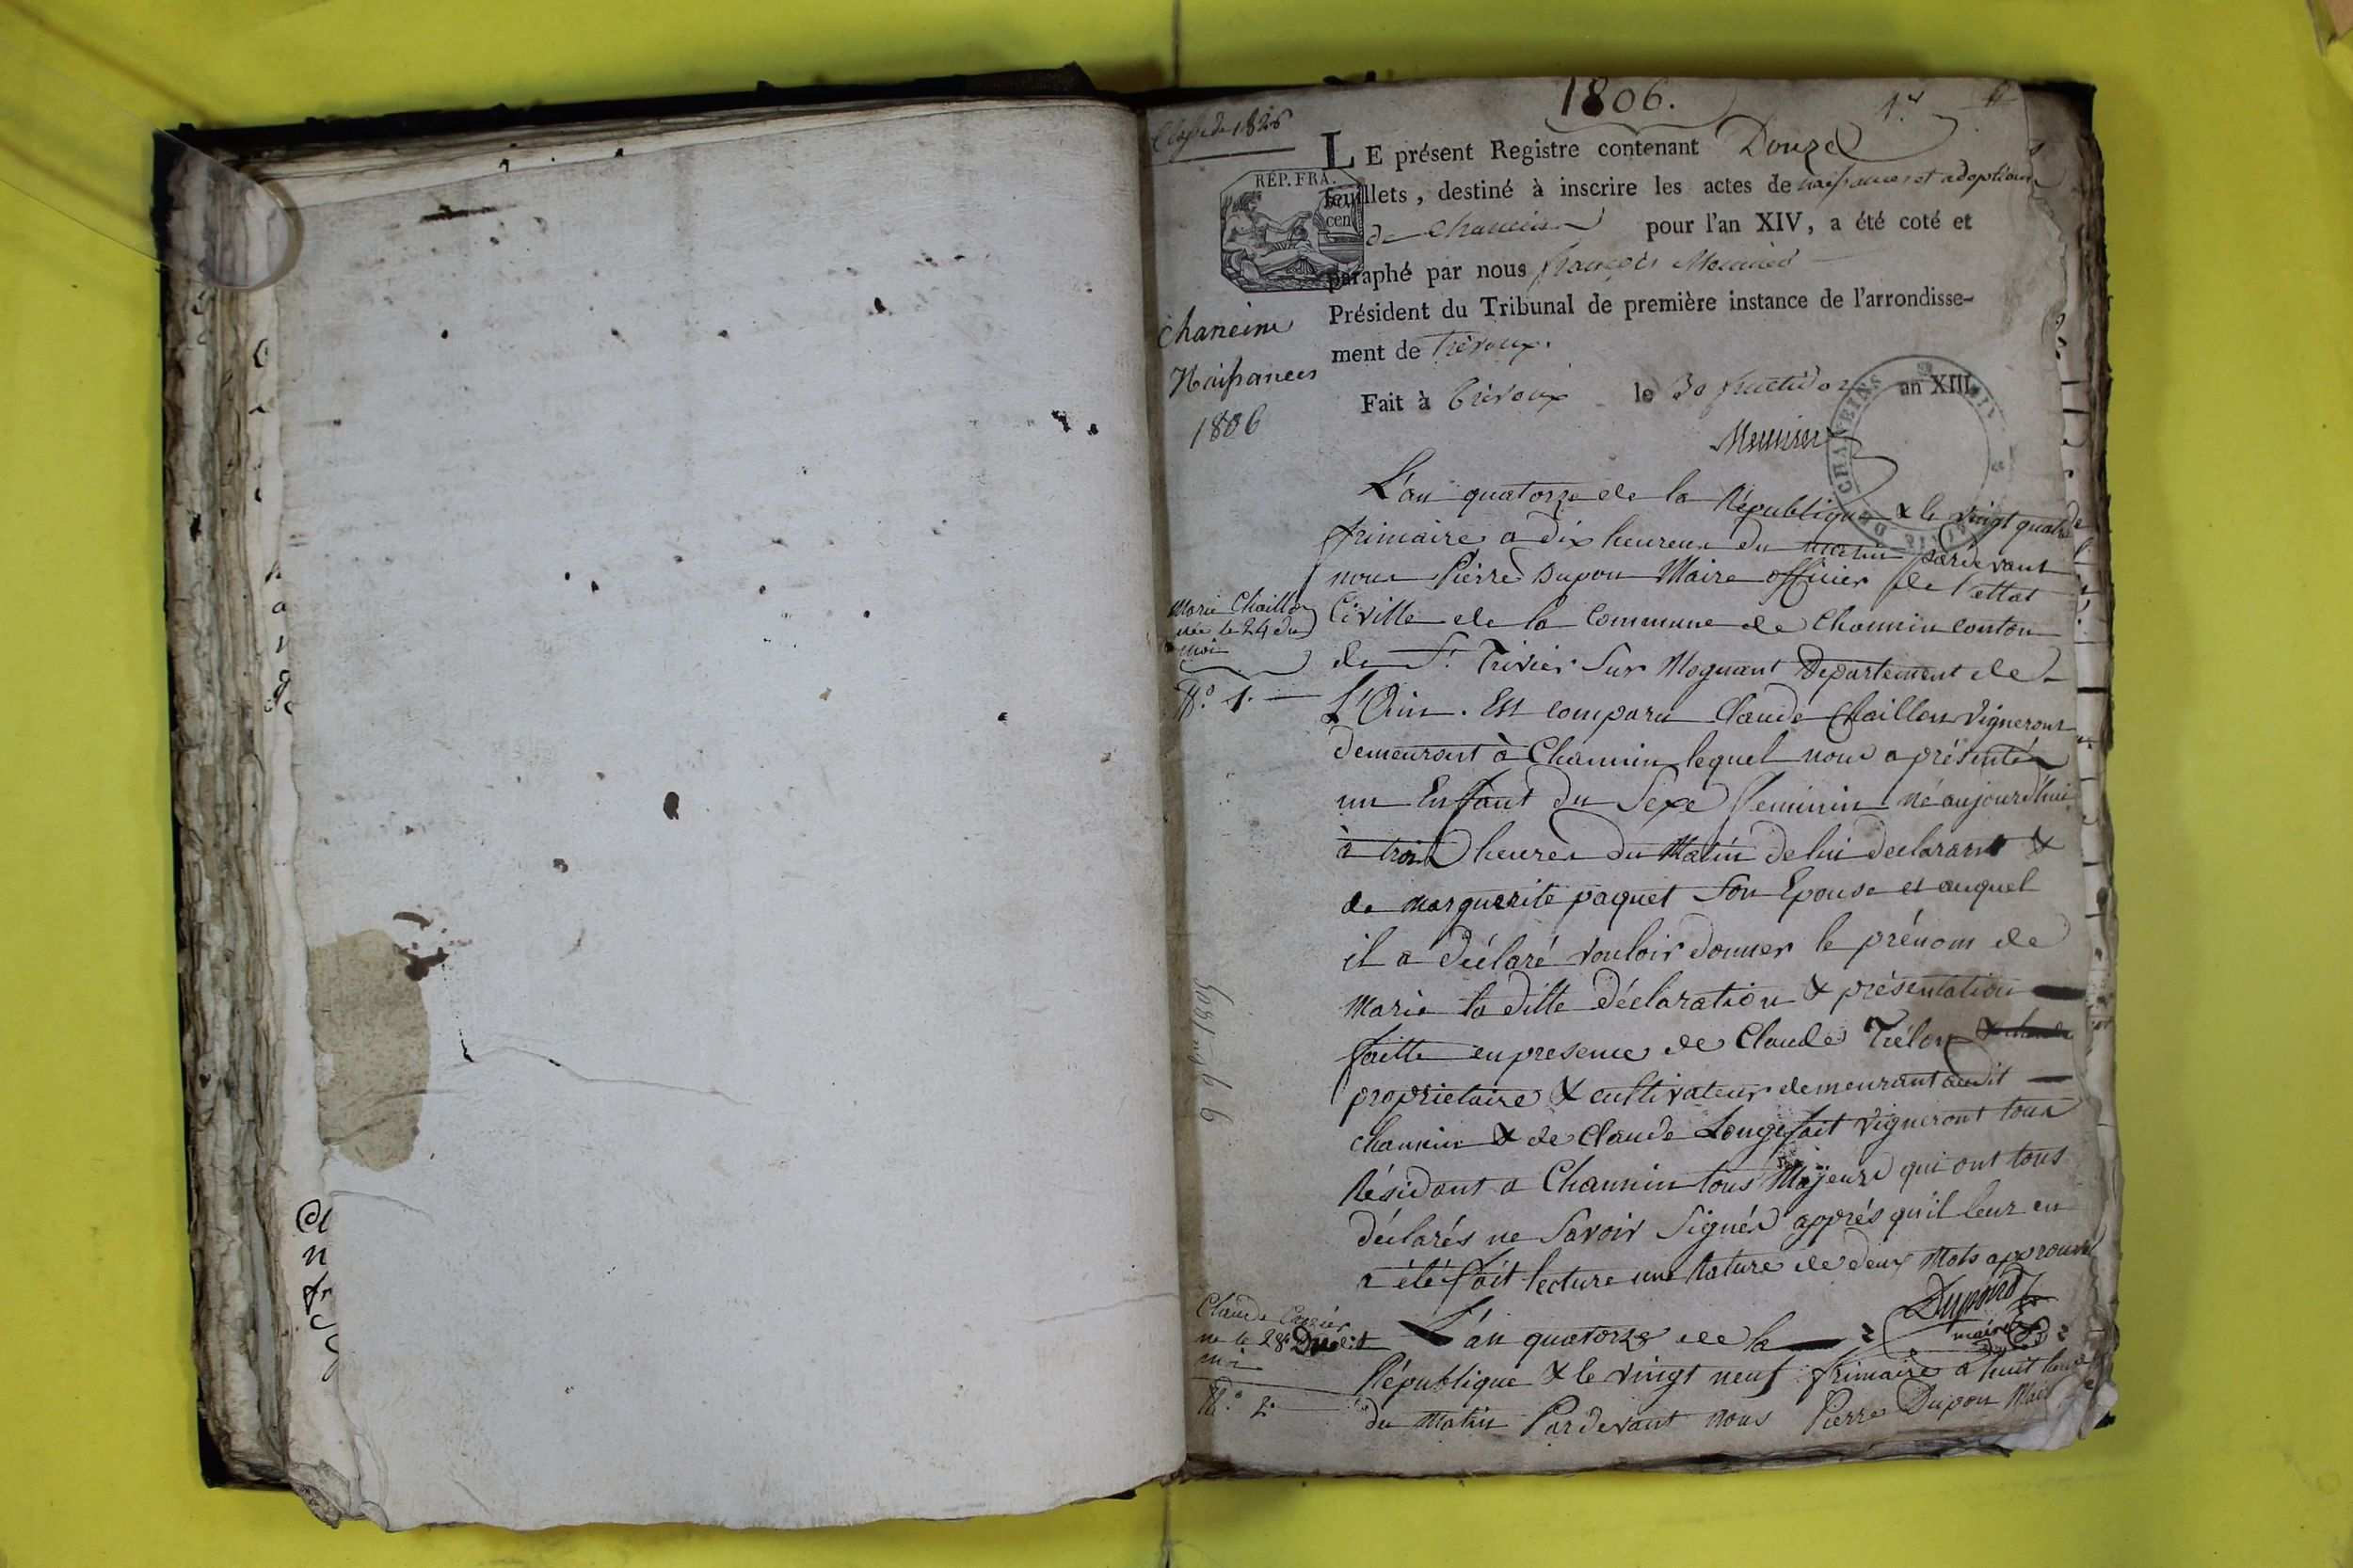 1806.
1er
LE présent Registre contenant Douze
RÉP. FRA.
feuillets, destiné à inscrire les actes de naissances et adoptions
cen
de Chaneins pour l'an XIV, a été coté et
paraphé par nous françois Meunier
Président du Tribunal de première instance de l'arrondisse-
ment de Trévoux.
Fait à Trévoux le 30 fructidor an XIII
Meunier
chaneins
Naissances
1806
L'an quatorze de la République & le vingt quatre
frimaire a dix heureus du matin pardevant
nous Pierre Dupon Maire officier de l'ettat
Civille de la Commune de Channin conton
de St. Trivier Sur Mognant Departement de
L'Ain. Est comparu Claude Chaillon Vigneront
demeurant à Channin lequel nous a présenté
un Enffant du Sexe feminin né aujourdhui
à trois heures du Matin de lui declarant &
de marguerite paquet Son Epouse et auquel
il a déclaré vouloir donner le prénom de
Marie la ditte déclaration & présentation
faitte en presence de Claude Trélon
proprietaire & cultivateur demeurant audit
channin & de Claude Longefait Vigneront tous
Résidant a Channin tous Majeurs qui ont tous
déclarés ne Savoir Signés apprés qu'il leur en
a été fait lecture une Rature de deux Mots approuvé
Dupond
maire
Marie Chaillon
née le 24 du
moi
No. 1.
L'an quatorze de la
République & le vingt neuf frimaire a huit heure
du Matin Pardevant nous Pierre Dupon Mair
Claude
né le 28 Dudit
moi
No. 2.